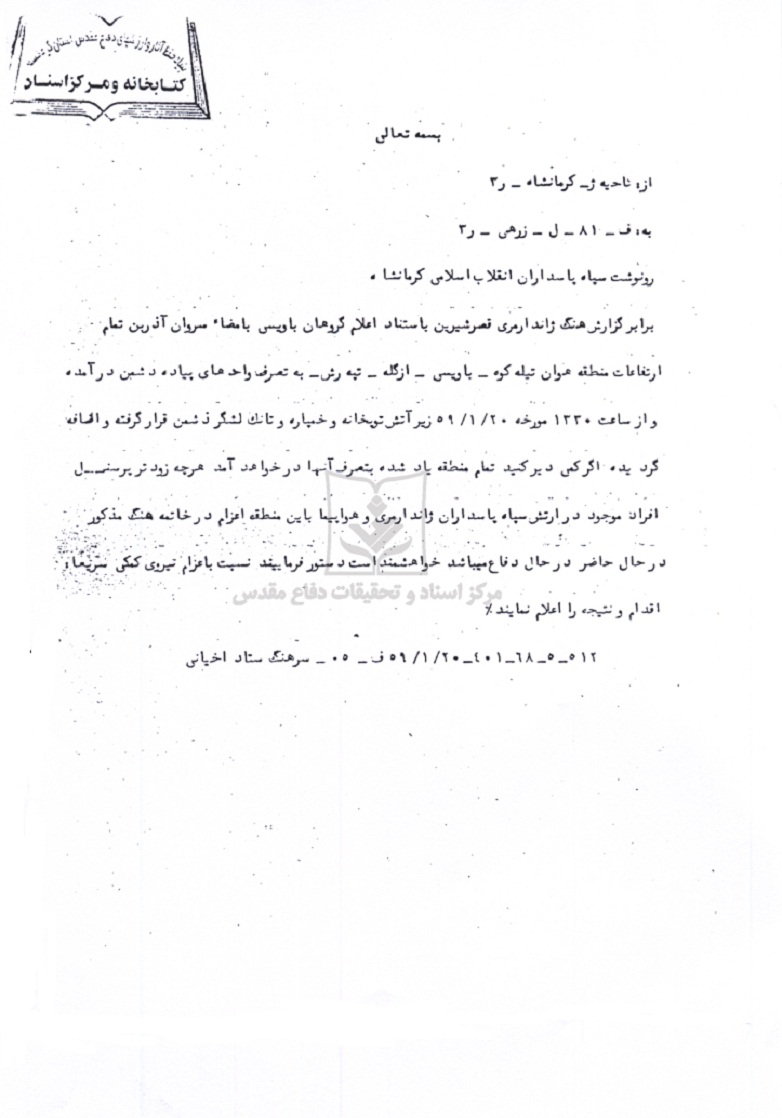 کتابخانه و مرکز اسناد
بسمه تعالی
از: ناحیه ژ_ کرمانشاه _ ر۳
به: ف _ ۸۱ _ ل _ زرهی _ ر۳
رونوشت سپاه پاسداران انقلاب اسلامی کرمانشاه .
برابر گزارش هنگ ژاندارمری قصرشیرین باستناد اعلام گروهان باویسی بامضاء سروان آذربن تمام
ارتفاعات منطقه هوان تیله کوه _ باویسی _ ازگله _ تپه رش_ به تصرف واحدهای پیاده دشمن درآمده
و از ساعت ۱۲۳۰ مورخه ۵۹/۱/۲۰ زیر آتش توپخانه و خمپاره و تانک لشگر دشمن قرار گرفته و اضافه
گردیده اگر کمی دیر کنید تمام منطقه یاد شده بتصرف آنها در خواهد آمد هرچه زودتر پرسنــل
افراد موجود در ارتش سپاه پاسداران ژاندارمری و هواپیما باین منطقه اعزام در خاتمه هنگ مذکور
در حال حاضر در حال دفاع میباشد خواهشمند است دستور فرمایند نسبت باعزام نیروی کمکی سریعا:
اقدام و نتیجه را اعلام نمایند٪
مرکز اسناد و تحقیقات دفاع مقدس
۵۱۲_۵_۶۸_۴۰۱_۵۹/۱/۲۰ ف_ ۰۵ _ سرهنگ ستاد اخیانی